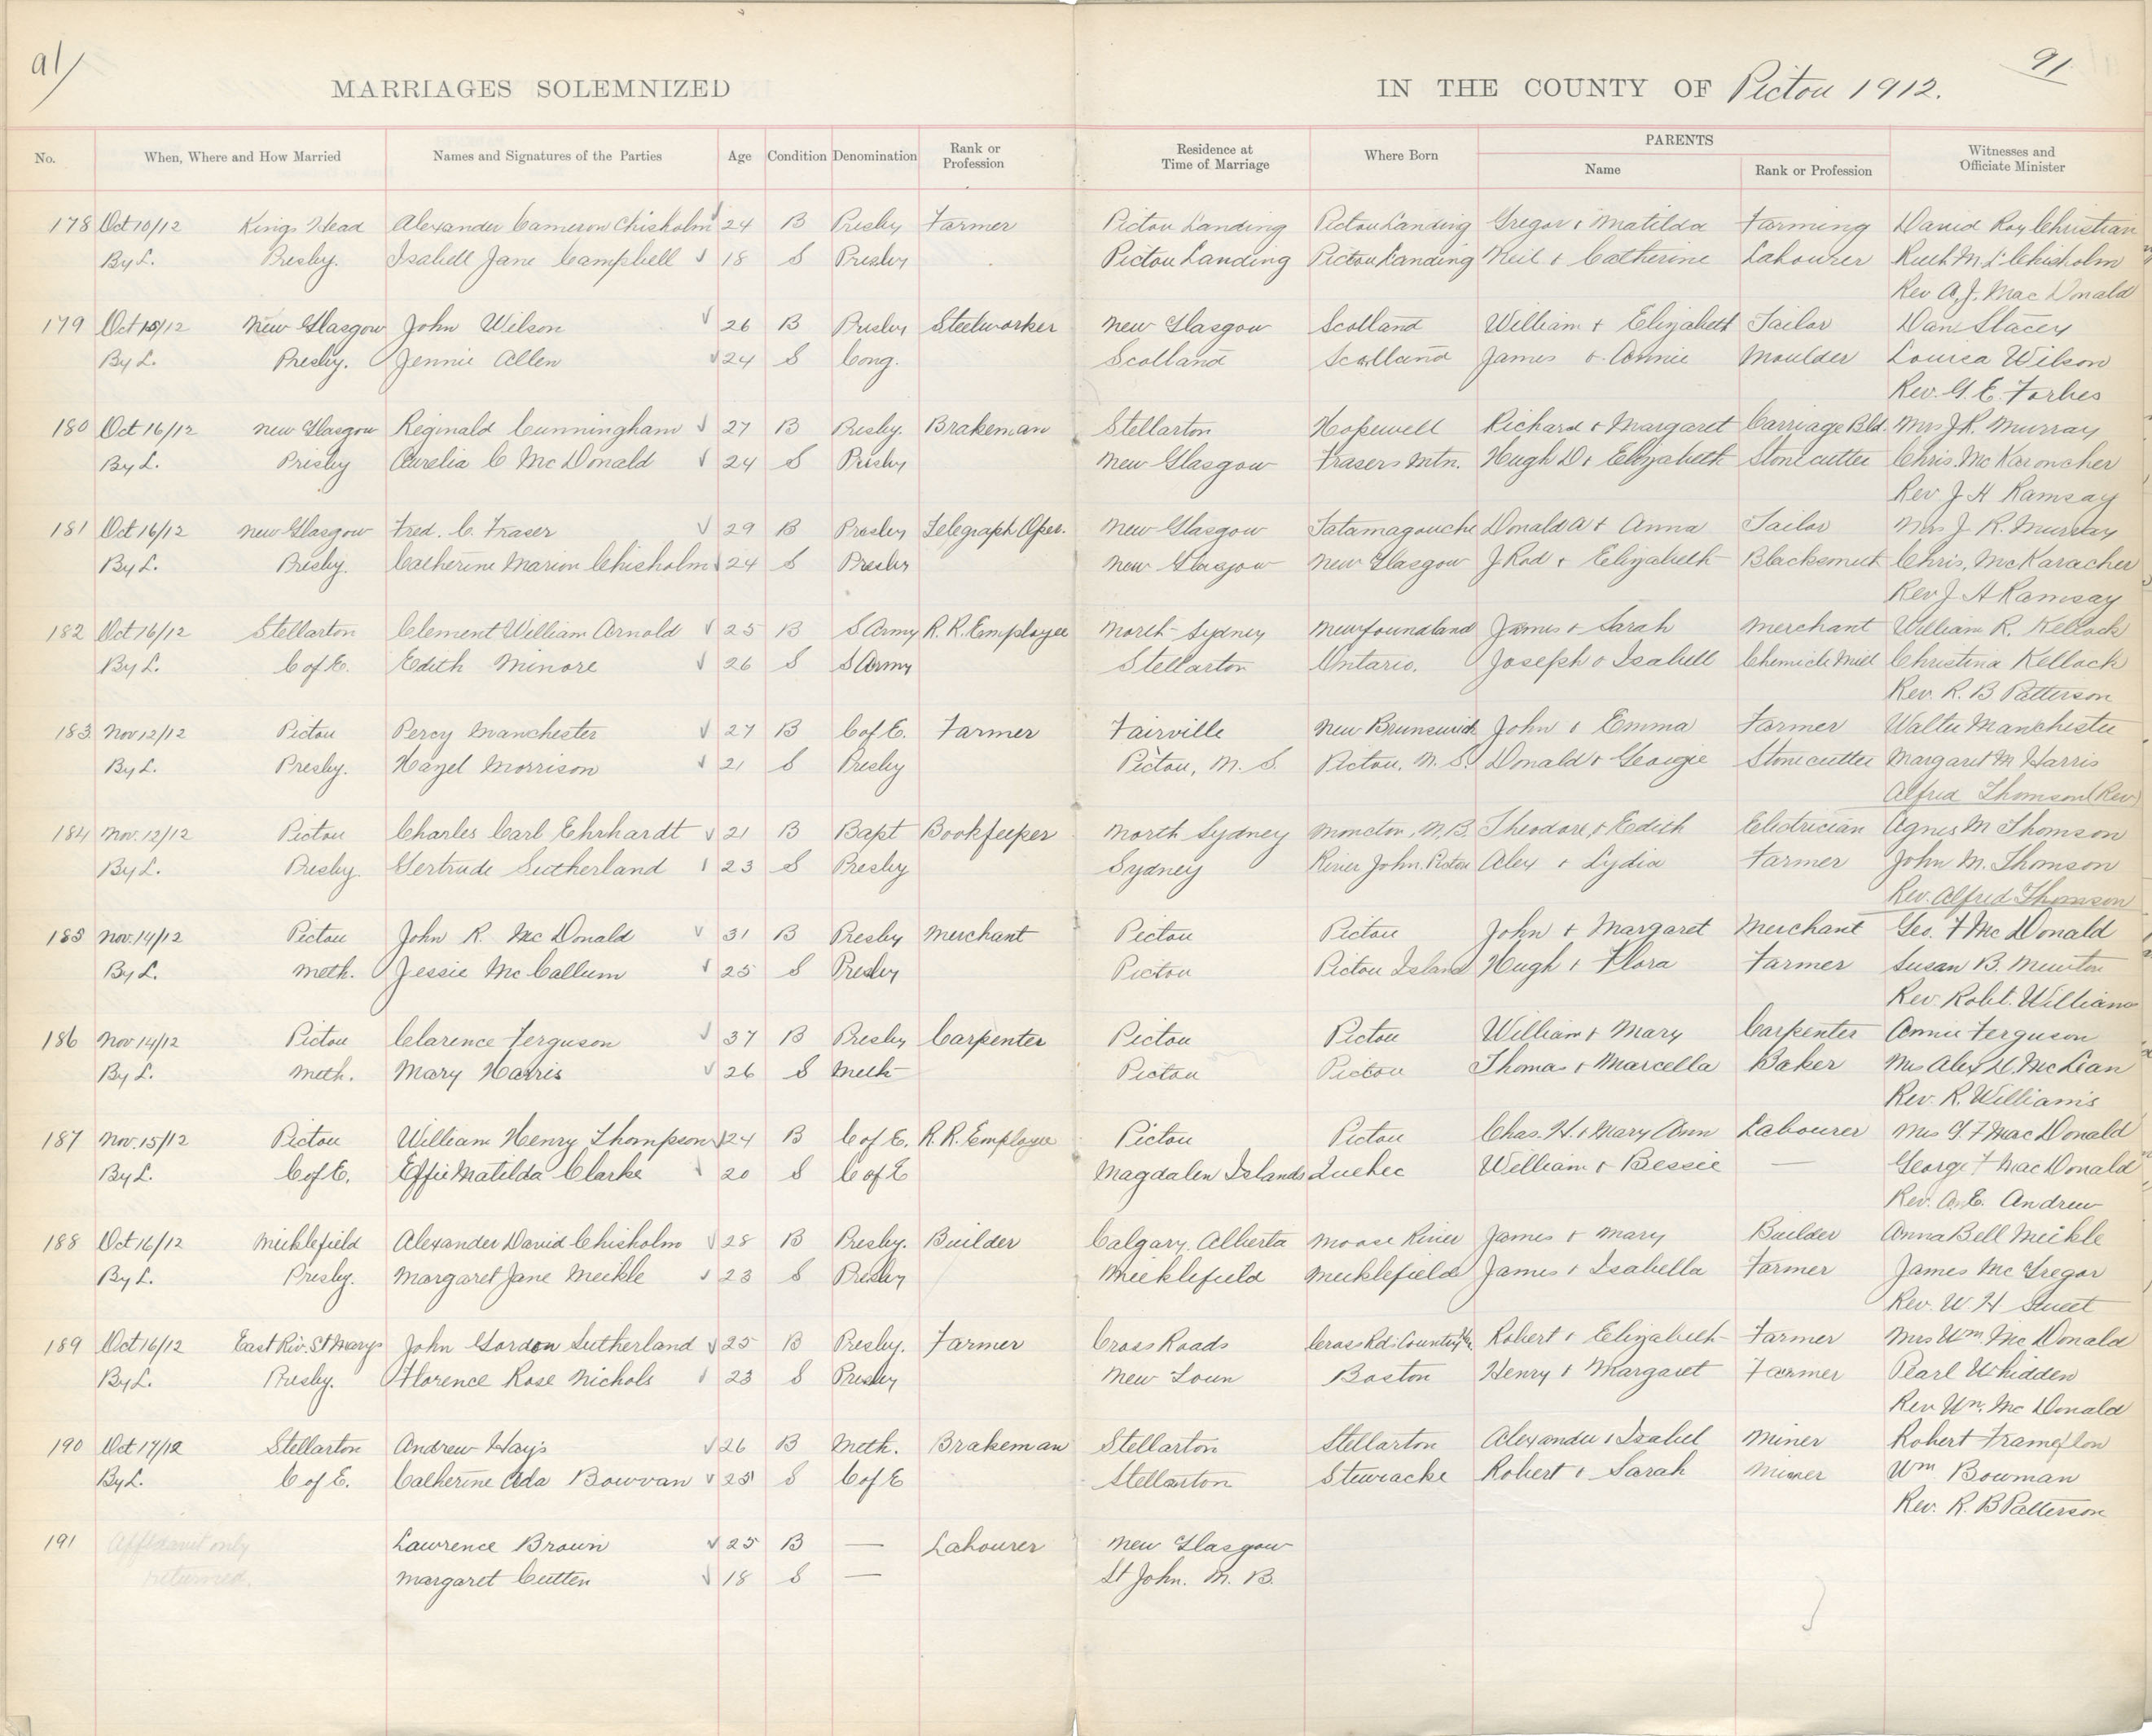 91/
91
MARRIAGES SOLEMNIZED IN THE COUNTY OF Pictou 1912.
No. When, Where and How Married Names and Signatures of the Parties Age Condition Denomination Rank or Profession Residence at Time of Marriage Where Born PARENTS Name Rank or Profession Witnesses and Officiate Minister
178 Oct 10/12 Kings Head Alexander Cameron Chisholm 24 B Presby Farmer Pictou Landing Pictou Landing Gregor + Matilda Farming David Roy Christian
By L. Presby. Isabell Jane Campbell 18 S Presby Pictou Landing Pictou Landing Neil + Catherine Labourer Ruth M. Chisholm
Rev A. J. Mac Donald
179 Oct 15/12 New Glasgow John Wilson 26 B Presby Steelworker New Glasgow Scotland William + Elizabeth Tailor Dan Stacey
By L. Presby. Jennie Allen 24 S Cong. Scotland Scotland James + Annie Moulder Louisa Wilson
Rev. G. E. Forbes
180 Oct 16/12 New Glasgow Reginald Cunningham 27 B Presby. Brakeman Stellarton Hopewell Richard + Margaret Carriage Bld. Mrs J. R. Murray
By L. Presby Aurelia C McDonald 24 S Presby New Glasgow Frasers Mtn. Hugh D + Elizabeth Stonecutter Chris. McKaroncher
Rev J H Ramsay
181 Oct 16/12 New Glasgow Fred. C. Fraser 29 B Presby Telegraph Oper. New Glasgow Tatamagouche Donald A + Anna Tailor Mrs J. R. Murray
By L. Presby. Catherine Marion Chisholm 24 S Presby New Glasgow New Glasgow J Rod + Elizabeth Blacksmith Chris. McKaracher
Rev J H Ramsay
182 Oct 16/12 Stellarton Clement William Arnold 25 B S Army R. R. Employee North Sydney Newfoundland James + Sarah Merchant William R. Kellock
By L. C of E. Edith Minore 26 S S Army Stellarton Ontario. Joseph + Isabell Christina Kellock
Rev. R. B Patterson
183 Nov 12/12 Pictou Percy Manchester 27 B C of E. Farmer Fairville New Brunswick John + Emma Farmer Walter Manchester
By L. Presby. Hazel Morrison 21 S Presby Pictou, N. S. Pictou, N. S. Donald + Georgie Stonecutter Margaret M Harris
Alfred Thomson (Rev)
184 Nov. 12/12 Pictou Charles Carl Ehrhardt 21 B Bapt Bookkeeper North Sydney Moncton, N.B. Theodore + Edith Electrician Agnes M Thomson
By L. Presby. Gertrude Sutherland 23 S Presby Sydney River John. Pictou Alex + Lydia Farmer John M. Thomson
Rev. Alfred Thomson
185 Nov. 14/12 Pictou John R. McDonald 31 B Presby Merchant Pictou Pictou John + Margaret Merchant Geo. F McDonald
By L. Meth. Jessie McCallum 25 S Presby Pictou Pictou Island Hugh + Flora Farmer Susan B.
Rev. Robt. Williams
186 Nov 14/12 Pictou Clarence Ferguson 37 B Presby Carpenter Pictou Pictou William + Mary Carpenter Annie Ferguson
By L. Meth. Mary Harris 26 S Meth Pictou Pictou Thomas + Marcella Baker Mrs Alex D. McLean
Rev. R. Williams
187 Nov. 15/12 Pictou William Henry Thompson 24 B C of E. R. R. Employee Pictou Pictou Chas. H. + Mary Ann Labourer Mrs G. F MacDonald
By L. C of E. Effie Matilda Clarke 20 S C of E Magdalen Islands Quebec William + Bessie — George F MacDonald
Rev. A. E. Andrew
188 Oct 16/12 Meiklefield Alexander David Chisholm 28 B Presby. Builder Calgary, Alberta Moose River James + Mary Builder Anna Bell Meikle
By L. Presby. Margaret Jane Meikle 23 S Presby Meiklefield Meiklefield James + Isabella Farmer James McGregor
Rev. W. H Sweet
189 Oct 16/12 East Riv. St Marys John Gordon Sutherland 25 B Presby. Farmer Cross Roads Cross Rds Country Hr. Robert + Elizabeth Farmer Mrs Wm. McDonald
By L. Presby. Florence Rose Nichols 23 S Presby New Town Boston Henry + Margaret Farmer Pearl Whidden
Rev Wm. McDonald
190 Oct 17/12 Stellarton Andrew Hays 26 B Meth. Brakeman Stellarton Stellarton Alexander + Isabel Miner Robert Frampton
By L. C of E. Catherine Ada Bowvan 25 S C of E Stellarton Stewiacke Robert + Sarah Miner Wm Bowman
Rev. R. B Patterson
191 Affidavit only Lawrence Brown 25 B — Labourer New Glasgow
returned. Margaret Cutten 18 S — St John. N. B.